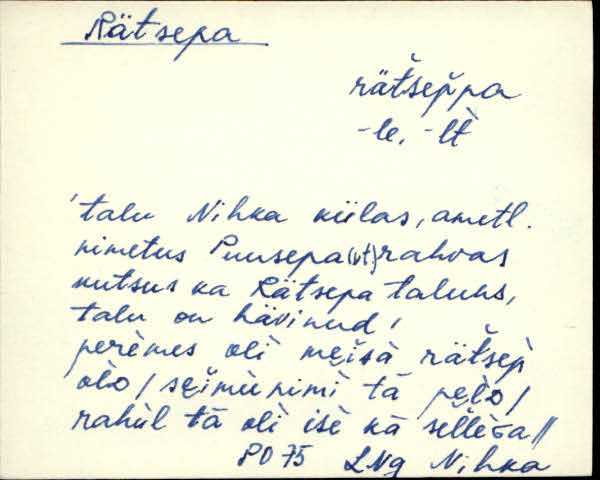 Rätsepa
rätšeppa
-le, -lt̀
'talu Nihka külas, ametl.
nimetus Puusepa (vt) rahvas
kutsus ka Rätsepa taluks,
talu on hävinud'
perèmes olì
rätšep̀
olo /
tä
/
rahùl tä olì isè kä
//
PÖ 75 LNg Nihka